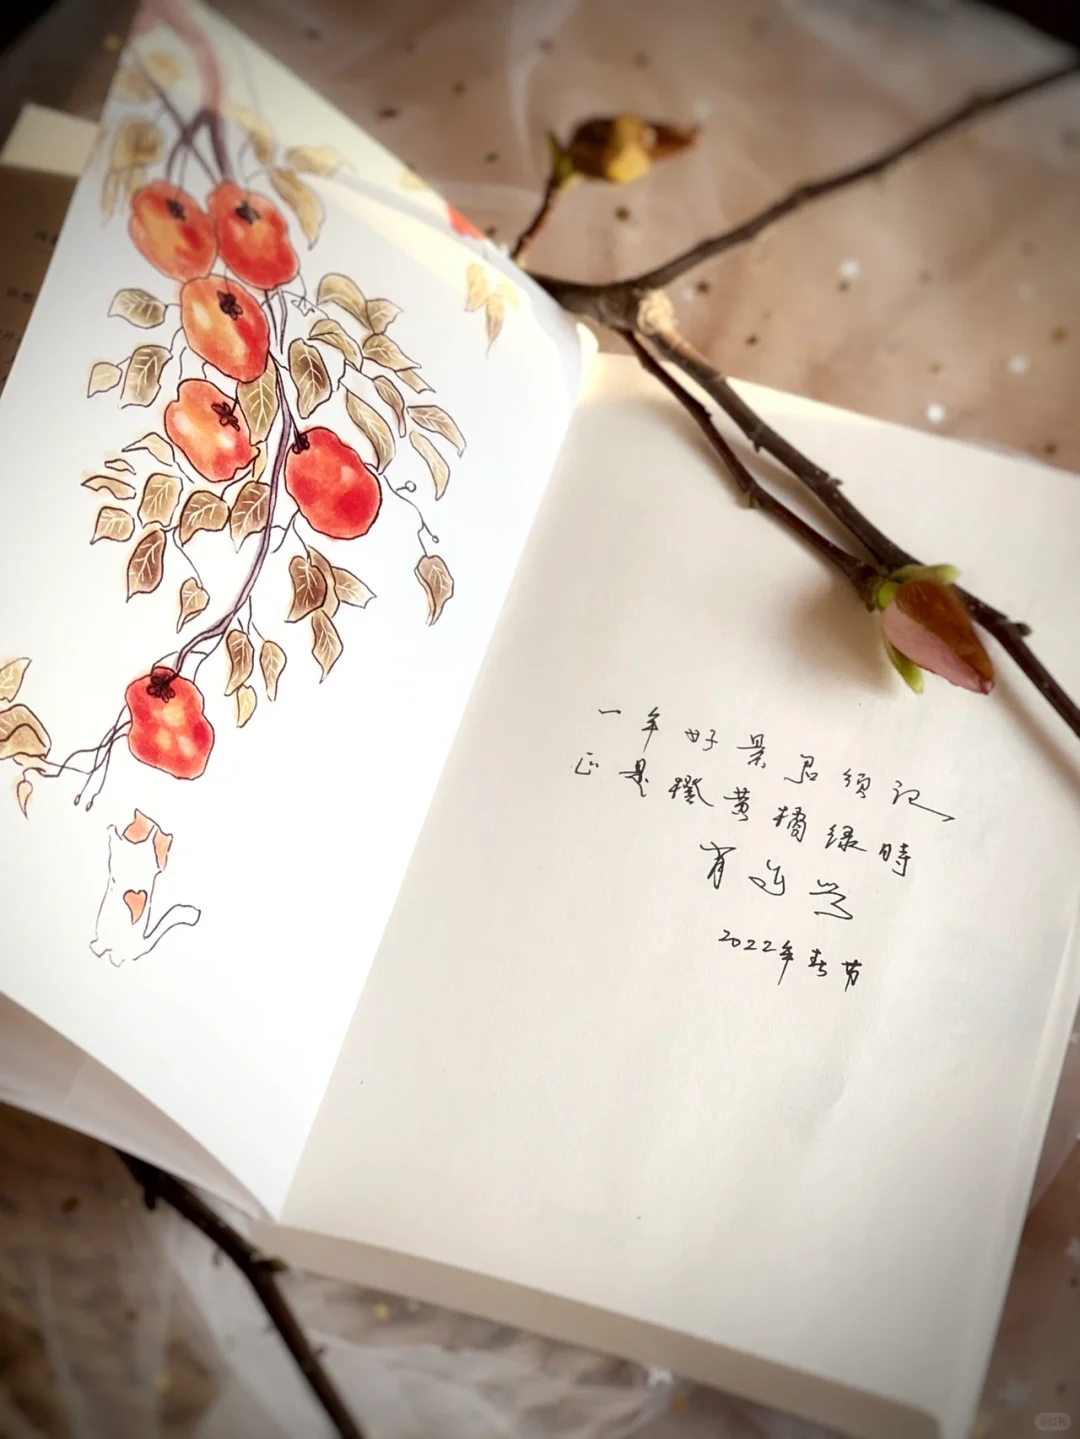 一年好景君须记
正是橙黄橘绿時
2022年春节
小红书